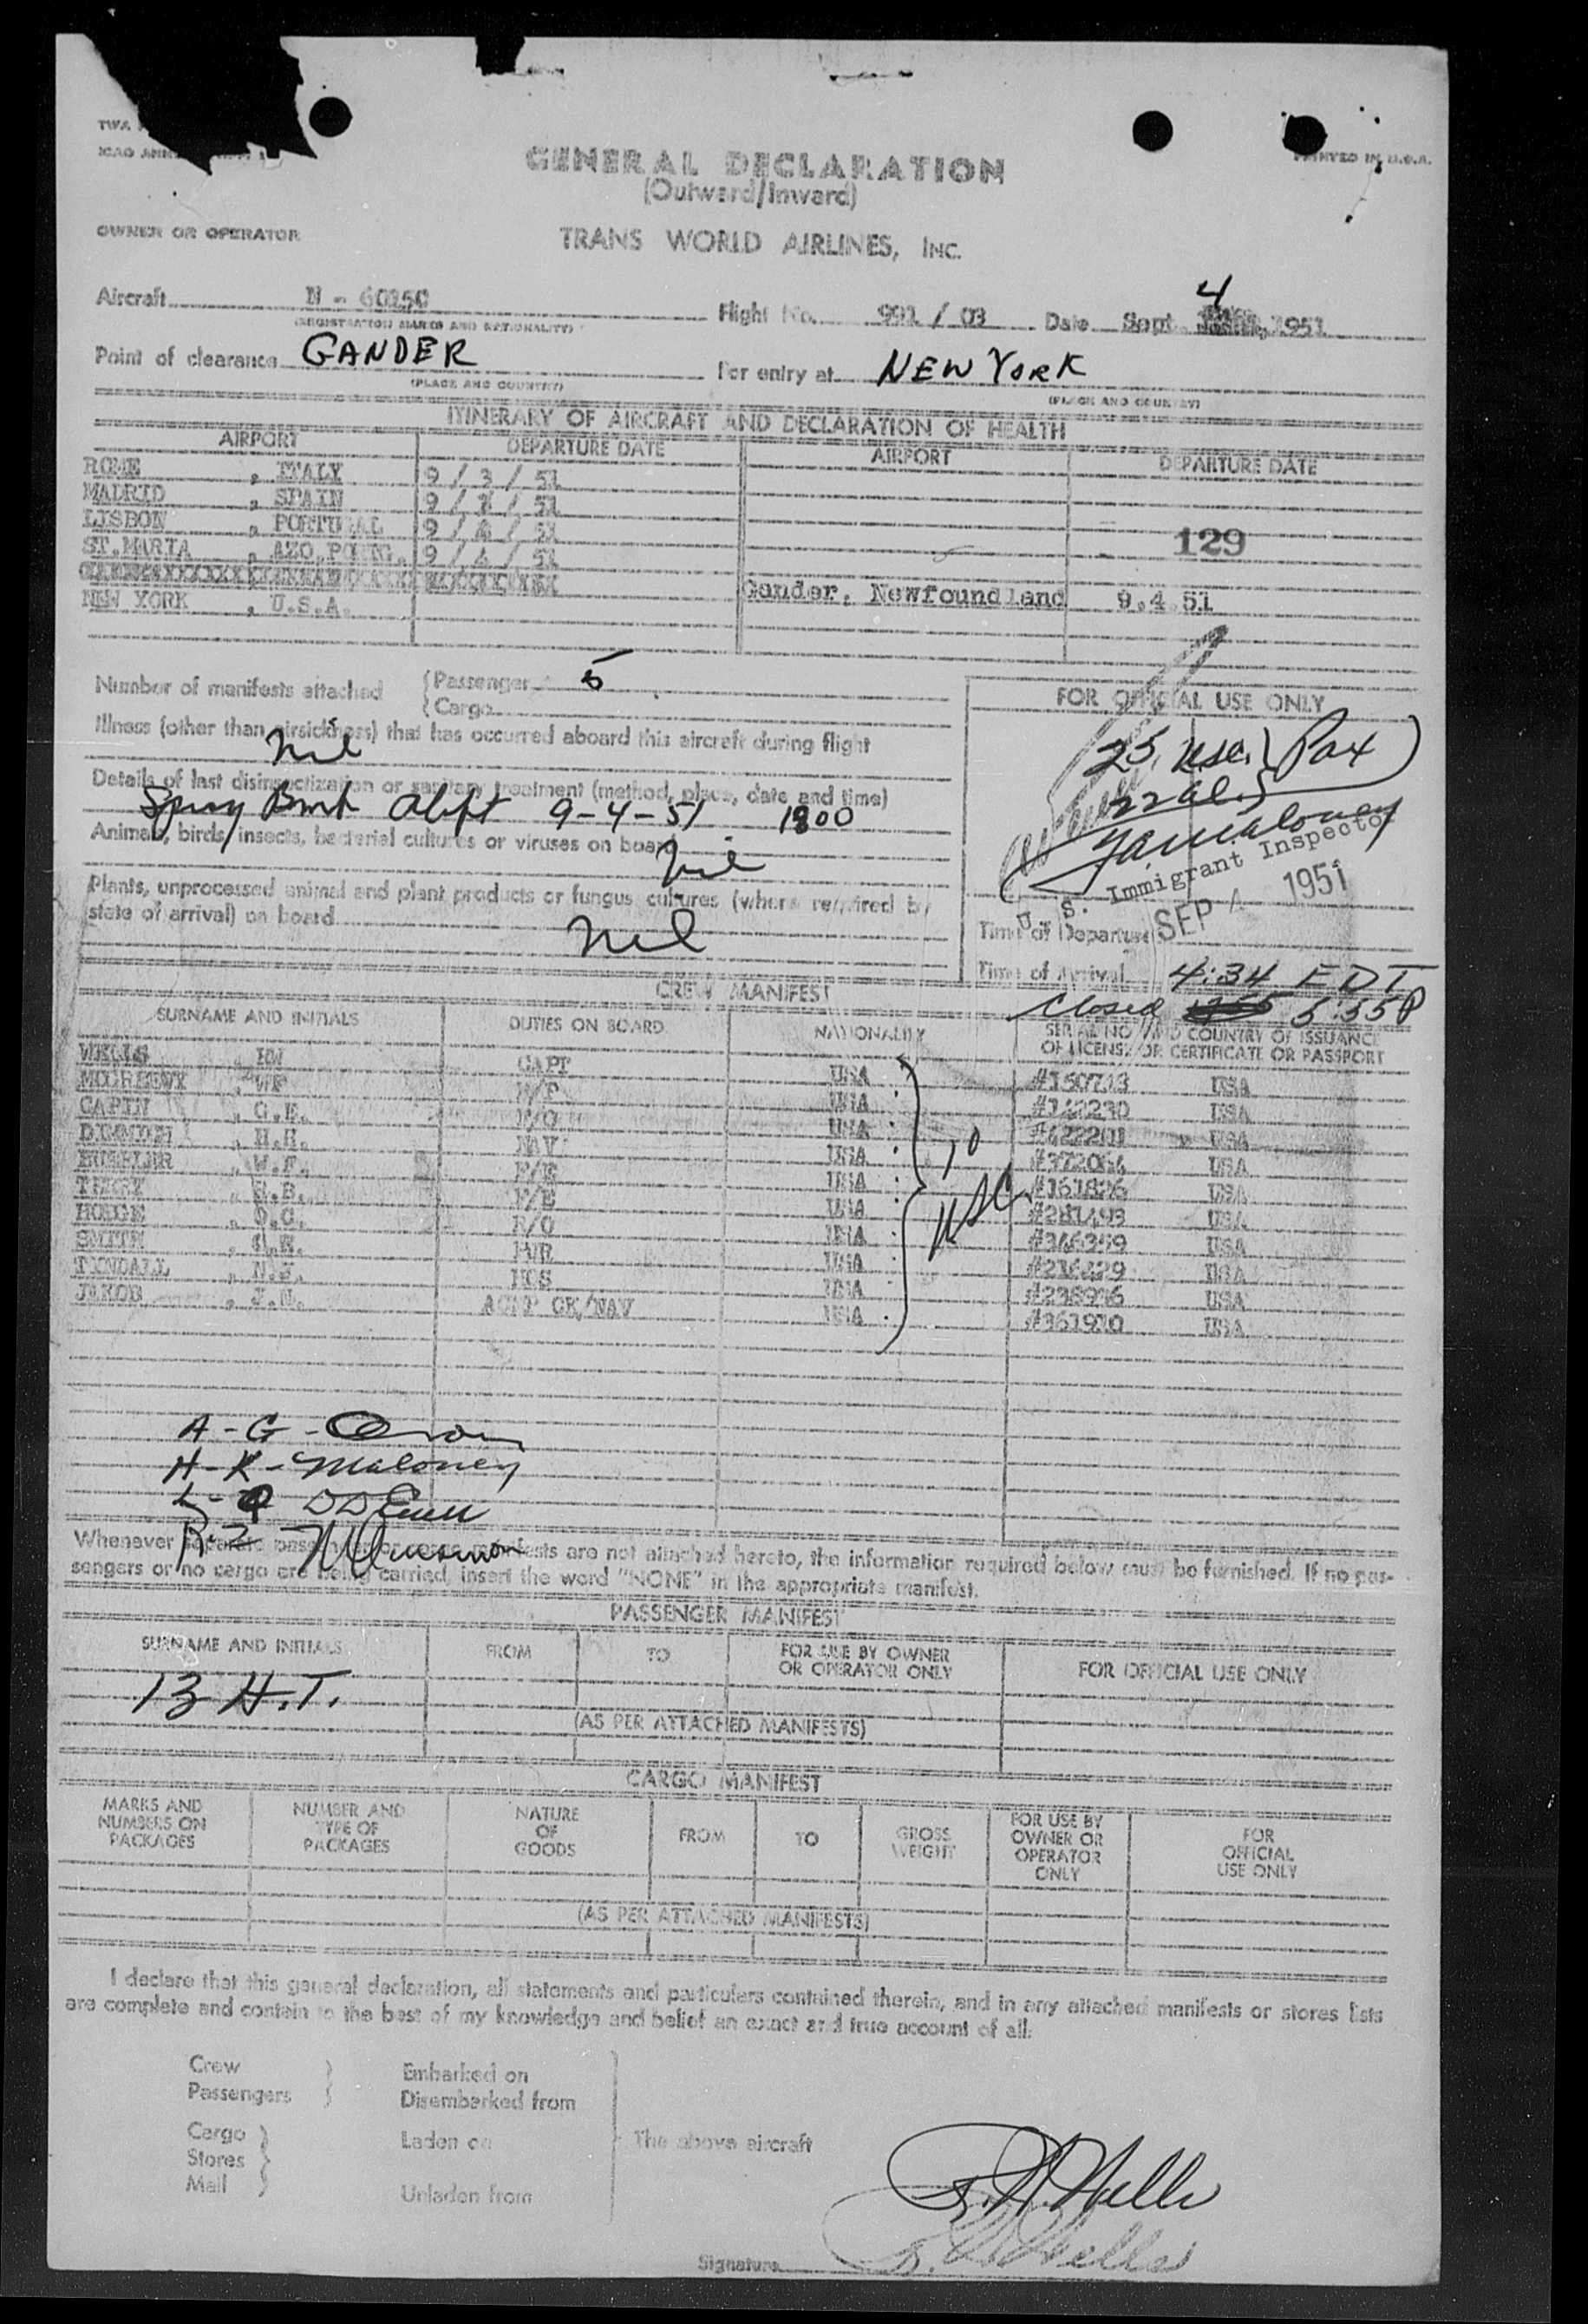 GENERAL DECLARATION
(Outward/Inward)
PRINTED IN U.S.A.
OWNER OR OPERATOR
TRANS WORLD AIRLINES, INC.
Aircraft N - 60250
(REGISTRATION MARKS AND NATIONALITY)
Flight No. 991 / 03 Date Sept. 4 1951
Point of clearance GANDER
(PLACE AND COUNTRY)
For entry at NEW YORK
(PLACE AND COUNTRY)
ITINERARY OF AIRCRAFT AND DECLARATION OF HEALTH
AIRPORT DEPARTURE DATE AIRPORT DEPARTURE DATE
ROME , ITALY 9 / 3 / 51
MADRID , SPAIN 9 / / 51
LISBON , PORTUGAL 9 / 4 / 51
ST.MARIA , AZO.PORTG. 9 / 4 / 51
129
NEW YORK , U.S.A. Gander, Newfoundland 9.4.51
Number of manifests attached
Passenger 5
Cargo
Illness (other than airsickness) that has occurred aboard this aircraft during flight
Nil
Details of last disinsectization or sanitary treatment (method, place, date and time)
Spray 9-4-51 1800
Animals, birds, insects, bacterial cultures or viruses on board
Nil
Plants, unprocessed animal and plant products or fungus cultures (where required by
state of arrival) on board
Nil
FOR OFFICIAL USE ONLY
25 usc. Pax
22 al.
U. S. Immigrant Inspector
SEP 4 1951
Time of Departure
Time of Arrival 4:34 EDT
Closed 5:55P
CREW MANIFEST
SURNAME AND INITIALS DUTIES ON BOARD NATIONALITY SERIAL NO. AND COUNTRY OF ISSUANCE
OF LICENSE OR CERTIFICATE OR PASSPORT
WELLS CAPT USA #150713 USA
, WF F/P USA #142230 USA
CAPIN , G.E. F/O USA USA
, H.H. NAV USA #372064 USA
, W.F. F/E USA #161826 USA
, H.B. F/E USA #281493 USA
HODGE , O.C. R/O USA #346359 USA
SMITH PUR USA #216429 USA
TINDALL , N.J. HOS USA #238936 USA
JAKOB , J.N. ACFT CK/NAV USA #361910 USA
10
USC
A - G -
H - K - Maloney
L - Q
R - Z
Whenever separate passenger or cargo manifests are not attached hereto, the information required below must be furnished. If no pas-
sengers or no cargo are being carried, insert the word "NONE" in the appropriate manifest.
PASSENGER MANIFEST
SURNAME AND INITIALS FROM TO FOR USE BY OWNER
OR OPERATOR ONLY FOR OFFICIAL USE ONLY
13 H.T.
(AS PER ATTACHED MANIFESTS)
CARGO MANIFEST
MARKS AND
NUMBERS ON
PACKAGES
NUMBER AND
TYPE OF
PACKAGES
NATURE
OF
GOODS
FROM
TO
GROSS
WEIGHT
FOR USE BY
OWNER OR
OPERATOR
ONLY
FOR
OFFICIAL
USE ONLY
(AS PER ATTACHED MANIFESTS)
I declare that this general declaration, all statements and particulars contained therein, and in any attached manifests or stores lists
are complete and contain to the best of my knowledge and belief an exact and true account of all:
Crew Embarked on
Passengers Disembarked from
Cargo Laden on The above aircraft
Stores
Mail Unladen from
Signature